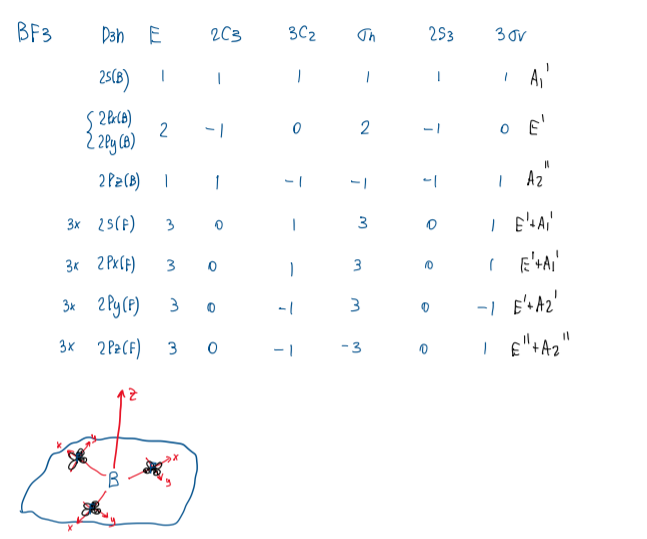 BF3 D3h E 2C3 3C2 σh 2S3 3σv
2s(B) 1 1 1 1 1 1 A1'
{ 2Px(B) 2Py(B) 2 -1 0 2 -1 0 E'
2Pz(B) 1 1 -1 -1 -1 1 A2''
3x 2s(F) 3 0 1 3 0 1 E'+A1'
3x 2Px(F) 3 0 1 3 0 1 E'+A1'
3x 2Py(F) 3 0 -1 3 0 -1 E'+A2'
3x 2Pz(F) 3 0 -1 -3 0 1 E''+A2''
z
x y
x
B
y
x y